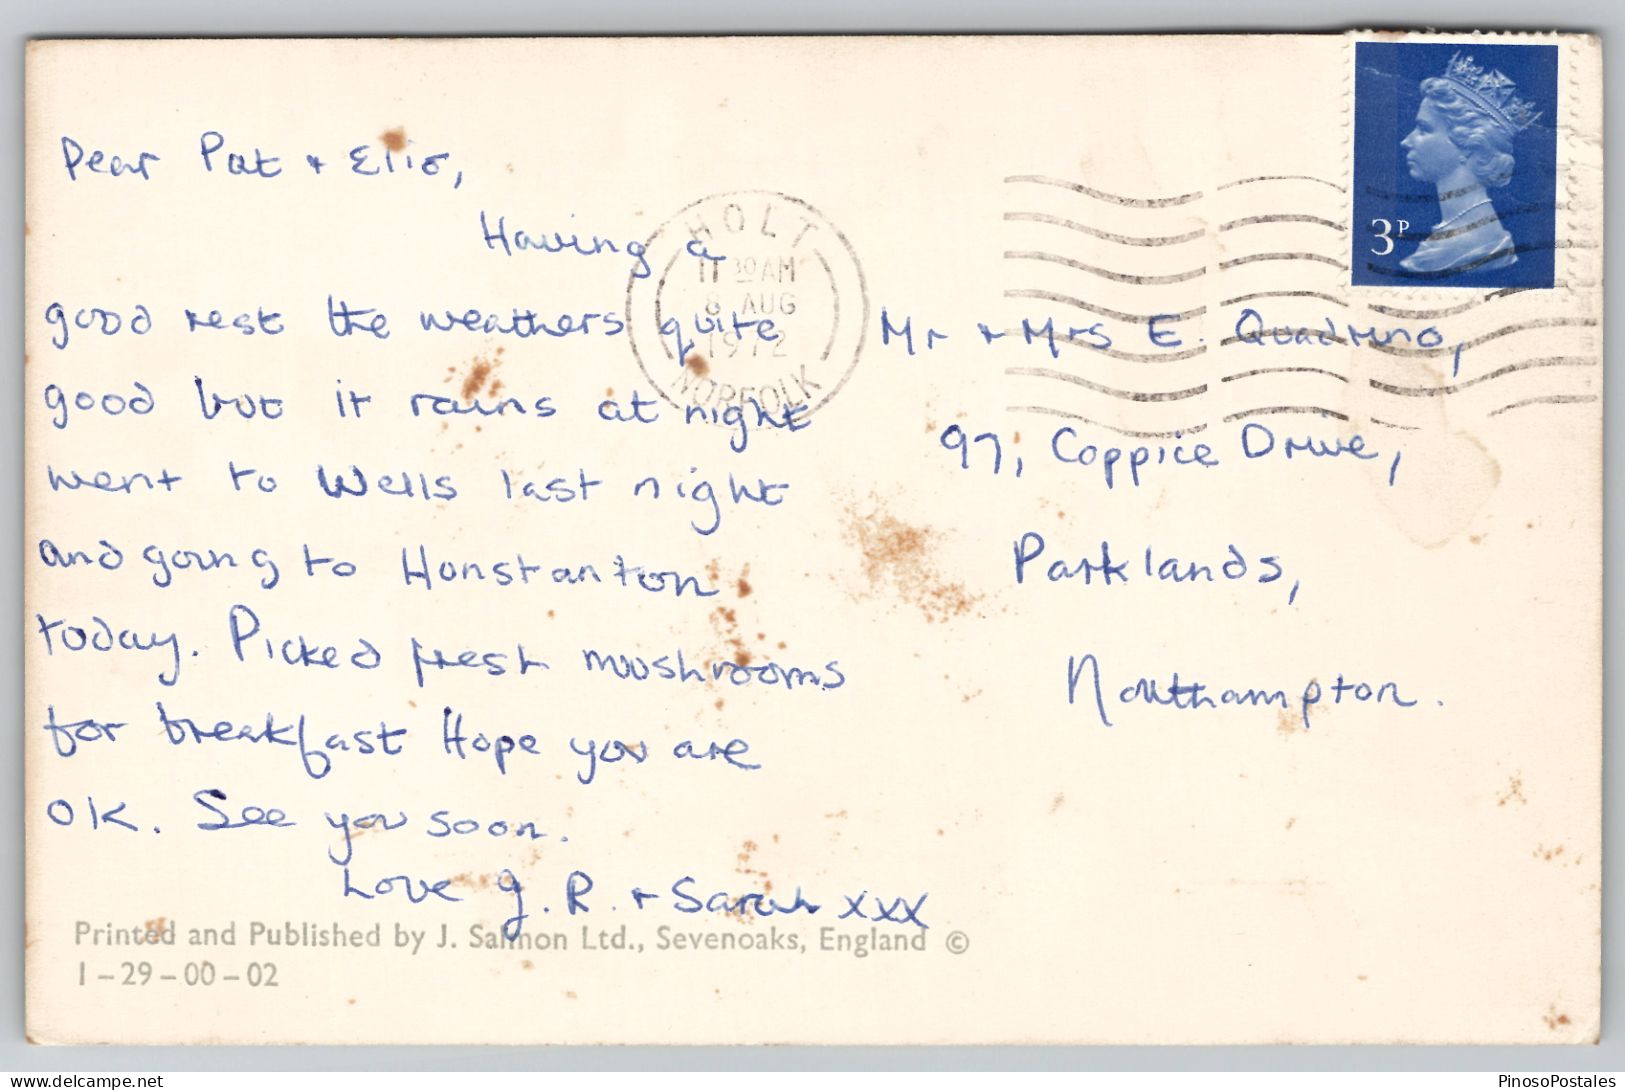 Dear Pat + Elio,
Having a
good rest the weathers quite
good but it rains at night
went to Wells last night
and going to Honstanton
today. Picked fresh mooshrooms
for breakfast Hope you are
OK. See you soon.
Love J. R. + Sarah xxx
Printed and Published by J. Salmon Ltd., Sevenoaks, England ©
1-29-00-02
HOLT
11 30 AM
8 AUG
1972
NORFOLK
3P
Mr + Mrs E. Quadrino,
97, Coppice Drive,
Parklands,
Northampton.
PinosoPostales